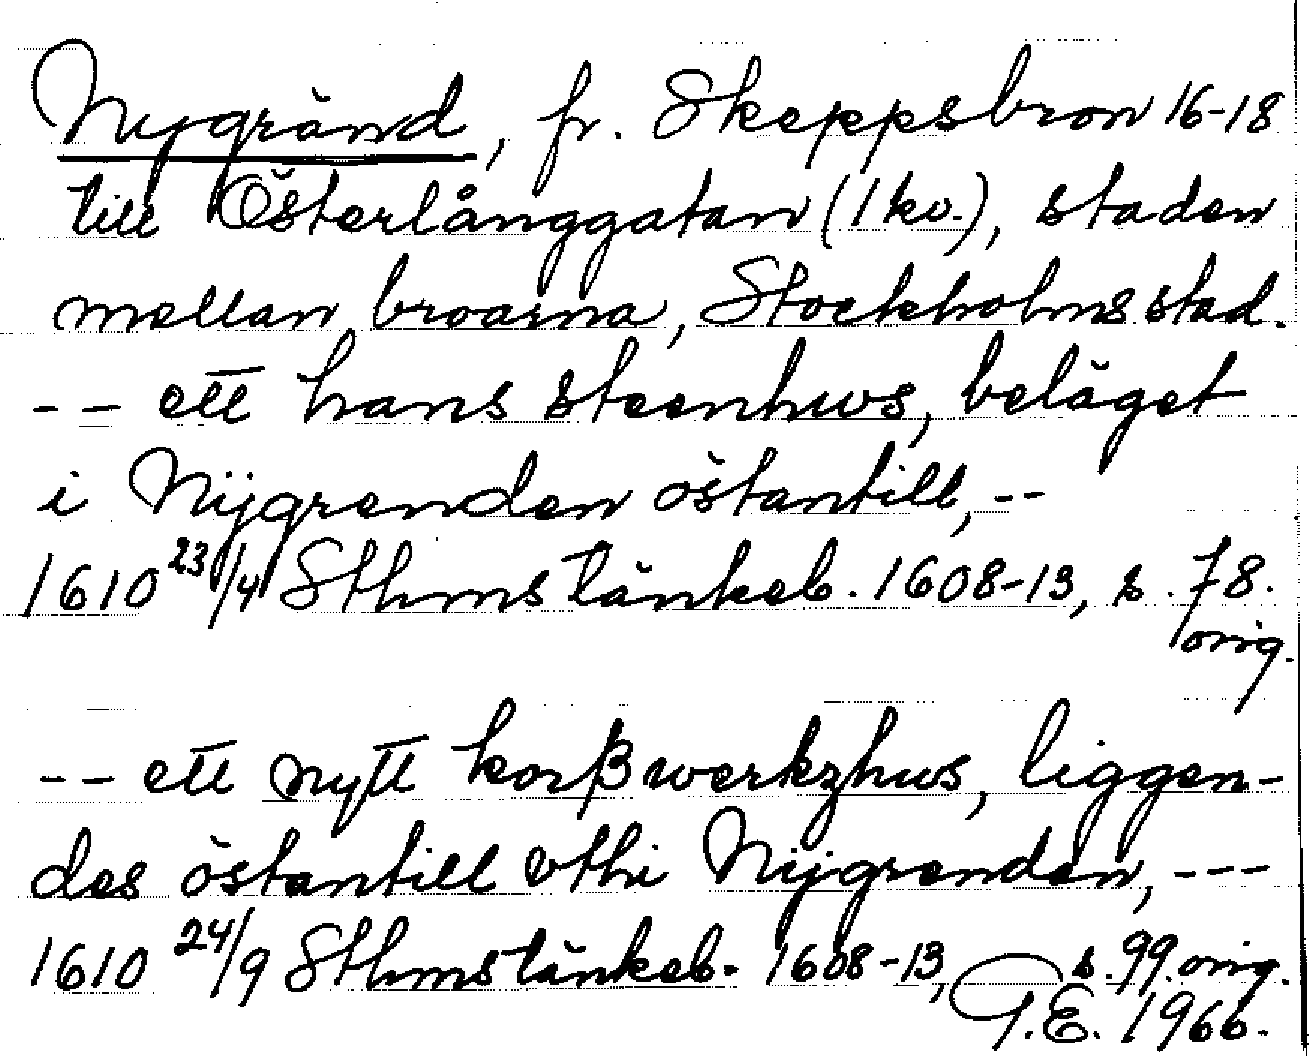 Nygränd, fr. Skeppsbron 16-18
till Österlånggatan (1 kv.), staden
mellan broarna, Stockholms stad.
-- ett hans steenhws, beläget
i Nijgrenden östantill, --
1610 23/4 Sthms tänkeb. 1608-13, s. 78.
orig.
-- ett nytt korßwerkzhws, liggen-
des östantill vthi Nijgrenden, ---
1610 24/9 Sthms tänkeb. 1608-13, s. 99. orig.
G.E. 1966.